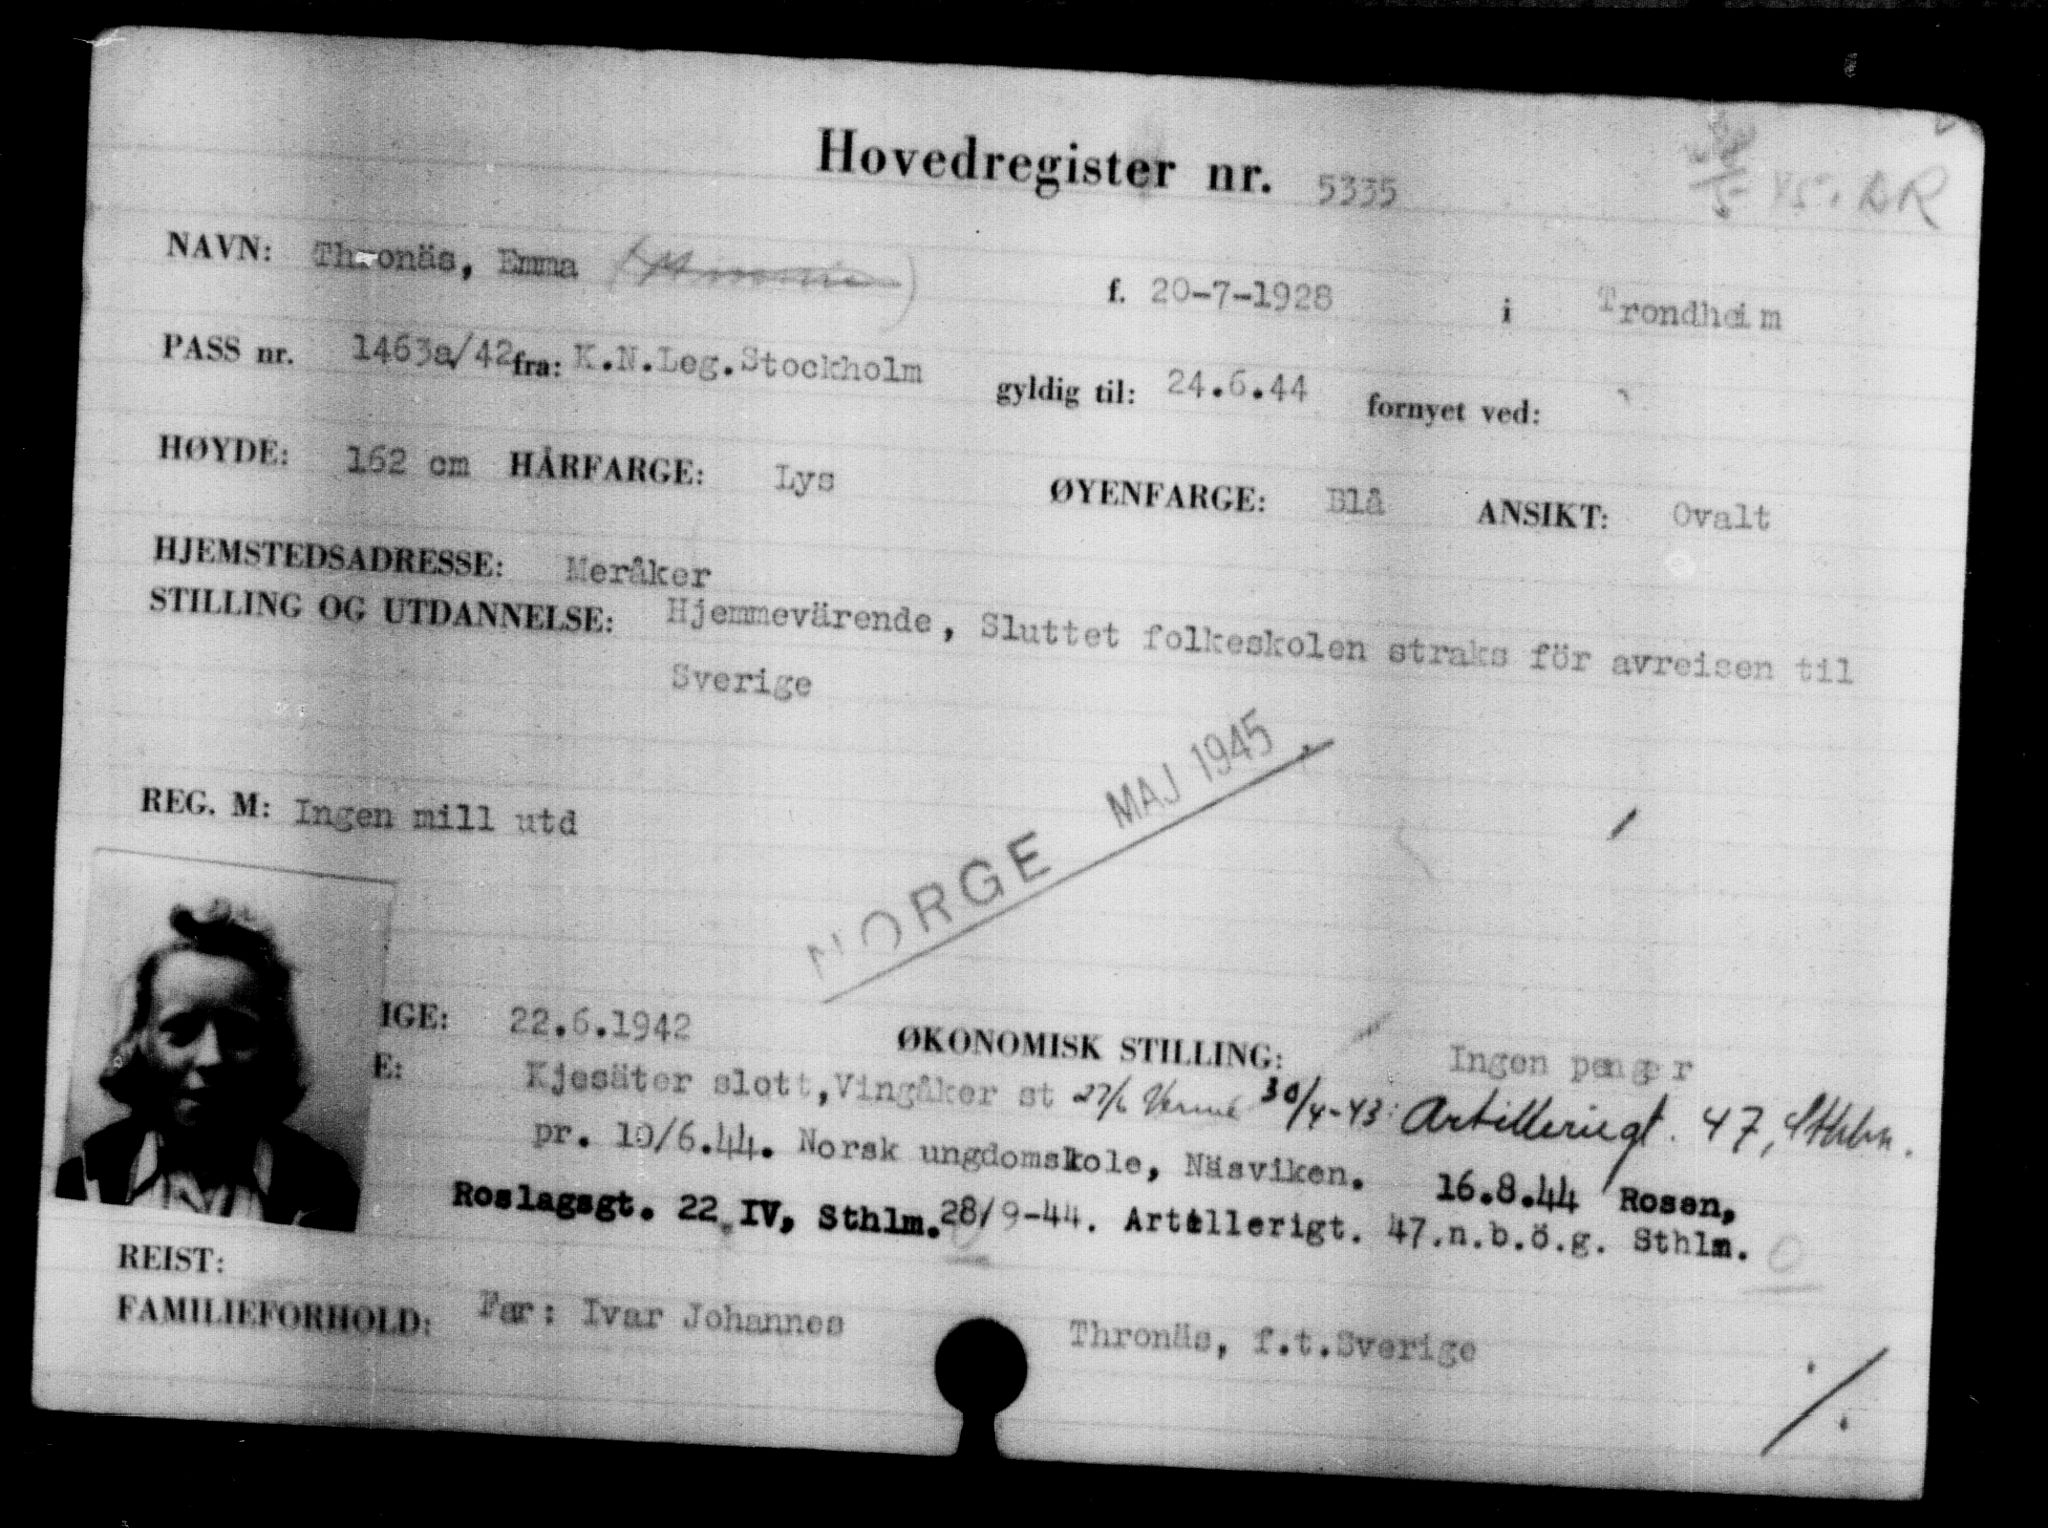 45. DR
Hovedregister nr. 5335
NAVN: Thronäs, Emma f. 20-7-1928 i Trondheim
PASS nr. 1463a/42 fra: K.N.Leg.Stockholm gyldig til: 24.6.44 fornyet ved:
HØYDE: 162 cm HÅRFARGE: Lys ØYENFARGE: Blå ANSIKT: Ovalt
HJEMSTEDSADRESSE: Meråker
STILLING OG UTDANNELSE: Hjemmevärende, Sluttet folkeskolen straks för avreisen til
Sverige
NORGE MAJ 1945
REG. M: Ingen mill utd
IGE: 22.6.1942 ØKONOMISK STILLING: Ingen penger
E: Kjesäter slott, Vingåker st 27/6 30/4-43: Artillerigt. 47, Sthlm.
pr. 10/6.44. Norsk ungdomskole, Näsviken. 16.8.44 Rosen,
Roslagsgt. 22 IV, Sthlm. 28/9-44. Artillerigt. 47.n.b.ö.g. Sthlm.
REIST:
FAMILIEFORHOLD: Far: Ivar Johannes Thronäs, f.t.Sverige